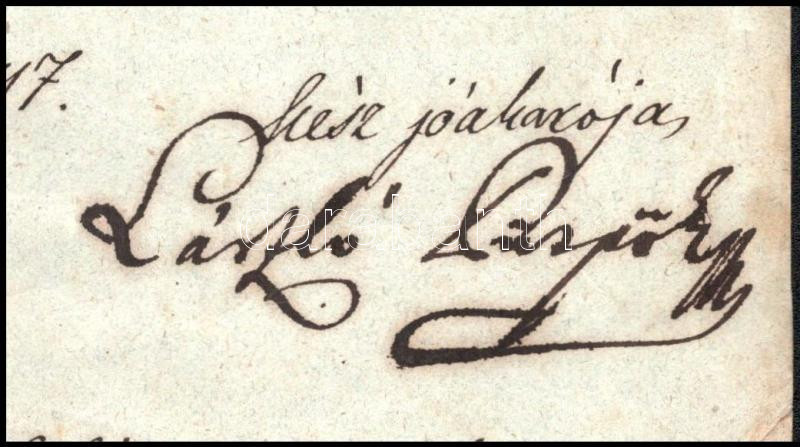 17.
kész jóakarója
László
darabanth